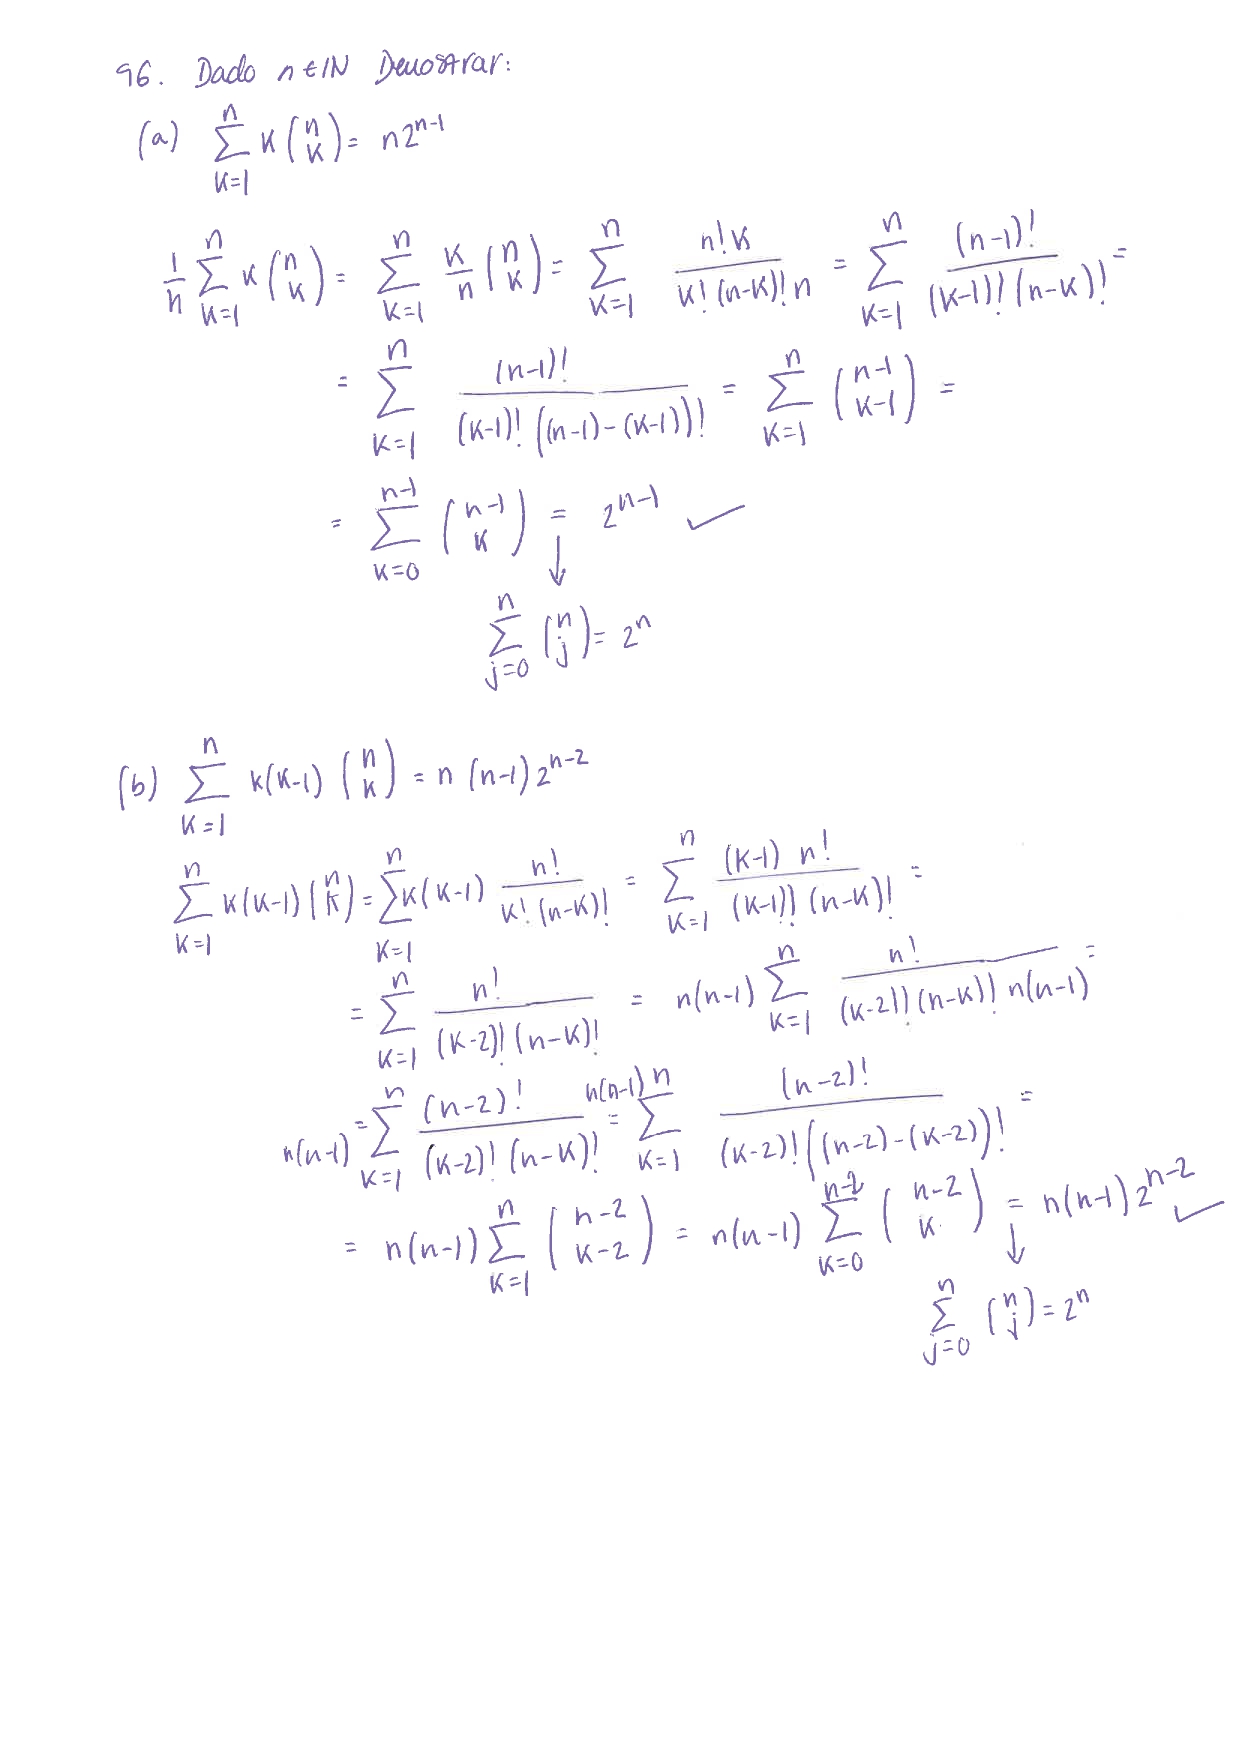 96. Dado n ∈ ℕ Demostrar:
(a) $\sum_{k=1}^{n} k \binom{n}{k} = n2^{n-1}$
$\frac{1}{n} \sum_{k=1}^{n} k \binom{n}{k} = \sum_{k=1}^{n} \frac{k}{n} \binom{n}{k} = \sum_{k=1}^{n} \frac{n! k}{k! (n-k)! n} = \sum_{k=1}^{n} \frac{(n-1)!}{(k-1)! (n-k)!} =$
$= \sum_{k=1}^{n} \frac{(n-1)!}{(k-1)! ((n-1)-(k-1))!} = \sum_{k=1}^{n} \binom{n-1}{k-1} =$
$= \sum_{k=0}^{n-1} \binom{n-1}{k} = 2^{n-1}$ ✓
↓
$\sum_{j=0}^{n} \binom{n}{j} = 2^n$
(b) $\sum_{k=1}^{n} k(k-1) \binom{n}{k} = n (n-1) 2^{n-2}$
$\sum_{k=1}^{n} k(k-1) \binom{n}{k} = \sum_{k=1}^{n} k(k-1) \frac{n!}{k! (n-k)!} = \sum_{k=1}^{n} \frac{(k-1) n!}{(k-1)! (n-k)!} =$
$= \sum_{k=1}^{n} \frac{n!}{(k-2)! (n-k)!} = n(n-1) \sum_{k=1}^{n} \frac{n!}{(k-2)! (n-k)! n(n-1)} =$
$= n(n-1) \sum_{k=1}^{n} \frac{(n-2)!}{(k-2)! (n-k)!} = n(n-1) \sum_{k=1}^{n} \frac{(n-2)!}{(k-2)! ((n-2)-(k-2))!} =$
$= n(n-1) \sum_{k=1}^{n} \binom{n-2}{k-2} = n(n-1) \sum_{k=0}^{n-2} \binom{n-2}{k} = n(n-1) 2^{n-2}$ ✓
↓
$\sum_{j=0}^{n} \binom{n}{j} = 2^n$